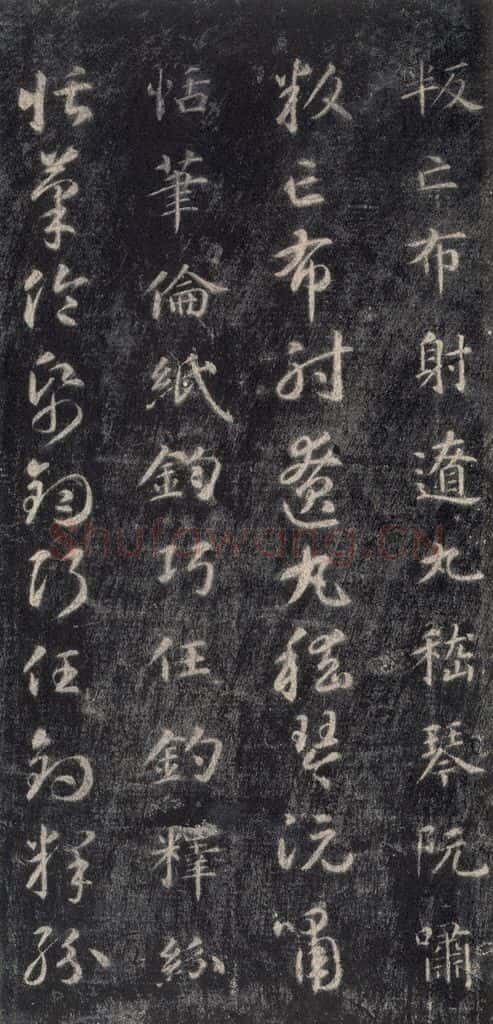 粄亡布射遼丸嵇琴阮嘯
粄亡布射遼丸嵇琴阮嘯
恬筆倫紙鈞巧任釣釋紛
恬筆倫紙鈞巧任釣釋紛
Shufawang.CN